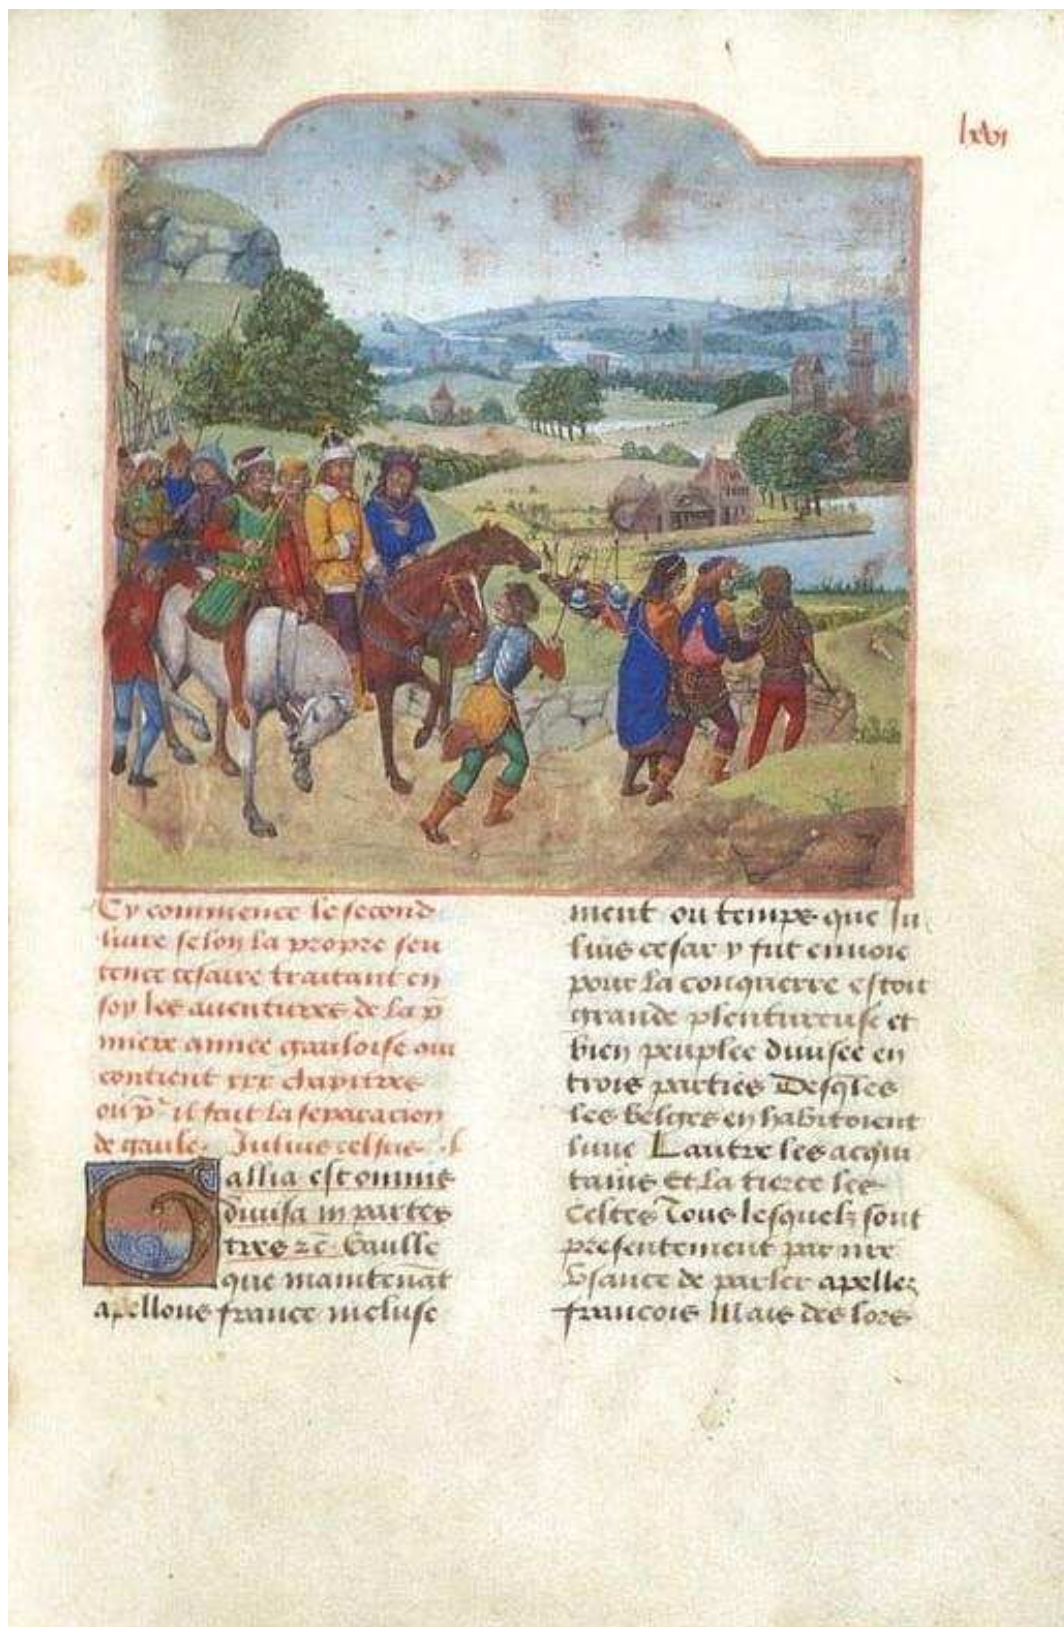 lxvi
Cy commence le second
livre selon la propre sen
tence cesaire traitant en
soy les aventures de la p̄
miere annee gauloise qui
contient xxx chapitres
ou p̄ il fait la separacion
de gaule. Iulius celsus.
Gallia est omnis
divisa in partes
tres Gaulle
que maintenāt
apellons france incluse
ment ou temps que Iu
lius cesar y fut envoie
pour la conquerre estoit
grande plentureuse et
bien peuplee divisee en
trois parties Desq̄les
les belges en habitoient
lune Lautre les acqui
tains Et la tierce les
Celtes Tous lesquelz sont
presentement par nr̄e
Usance de parler apellez
francois Mais des lors